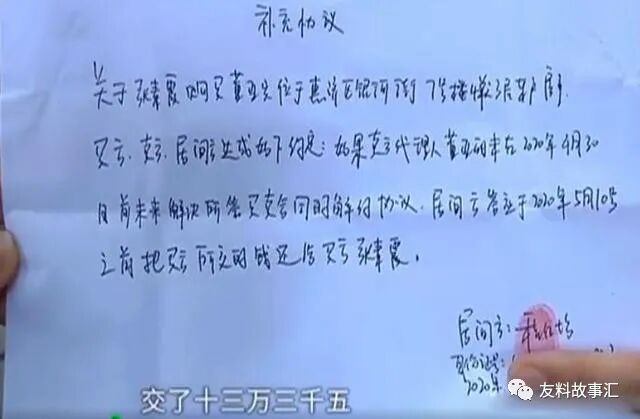 补充协议
关于张素霞购买黄亚光位于惠济区银河街7号楼
买方、卖方、居间方达成如下约定：如果卖方代理人黄亚的未在2020年4月30
日前未来解决所签买卖合同的解付协议，居间方答应于2020年5月10号
之前把买方所交的钱还给买方张素霞。
居间方：
身份证号：
2020年
交了十三万三千五
友料故事汇